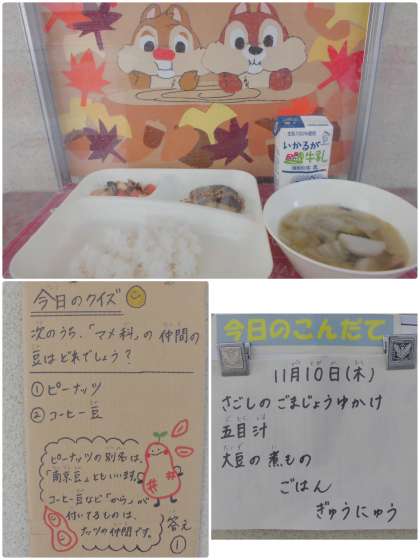 いかるが
牛乳
今日のクイズ
次のうち、「マメ科」の仲間の
豆はどれでしょう？
①ピーナッツ
②コーヒー豆
ピーナッツの別名は、
「南京豆」ともいいます。
コーヒー豆など「から」が
付いてるものは、
ナッツの仲間です。
答え
①
今日のこんだて
11月10日(木)
さごしのごまじょうゆかけ
五目汁
大豆の煮もの
ごはん
ぎゅうにゅう